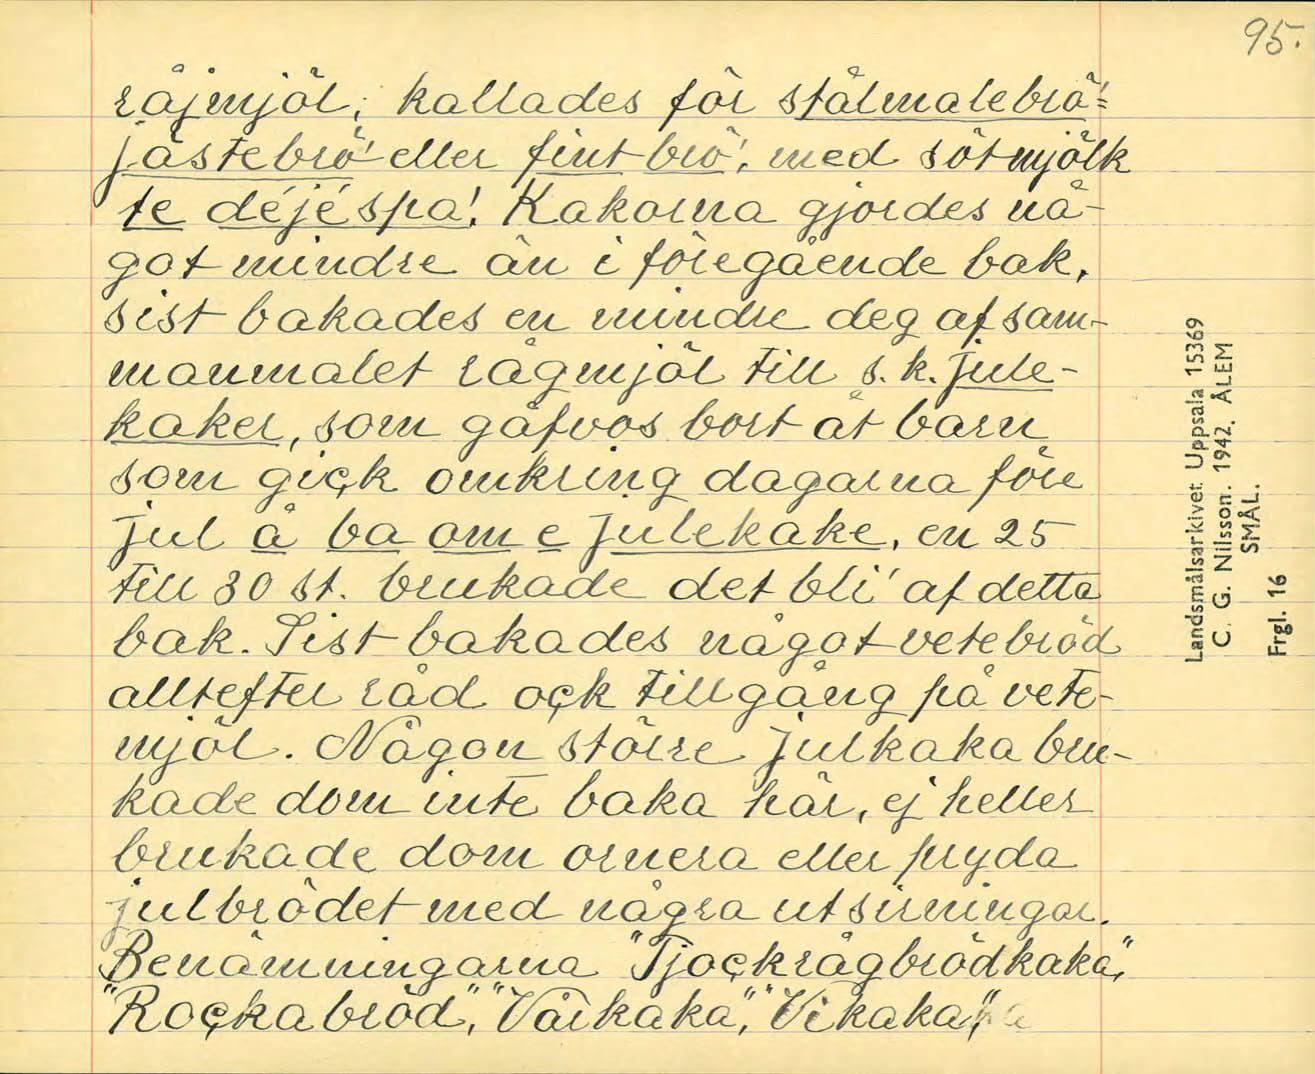 95.
råjmjöl, kallades för stålmalebrö'=
jästebrö' eller fint brö', med sötmjölk
te déjéspa'. Kakorna gjordes nå-
got mindre än i föregående bak,
sist bakades en mindre deg af sam-
manmalet rågmjöl till s.k. jule-
kaker, som gåfvos bort åt barn
som gick omkring dagarna före
jul å ba om e julekake, en 25
till 30 st. brukade det bli' af detta
bak. Sist bakades något vetebröd
alltefter råd ock tillgång på vete-
mjöl. Någon större julkaka bru-
kade dom inte baka här, ej heller
brukade dom ornera eller pryda
julbrödet med några utsirningar.
Benämningarna "Tjockrågbrödkaka",
"Rockabröd", "Vårkaka", "Vikaka",
Landsmålsarkivet Uppsala 15369
C. G. Nilsson. 1942. ÅLEM
SMÅL.
Frgl. 16